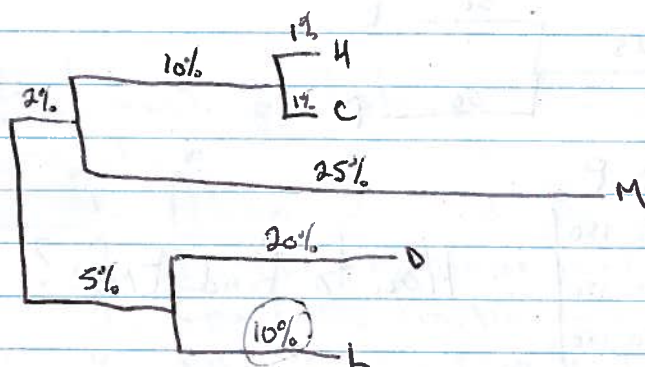 1%
H
10%
2%
1%
C
25%
M
20%
D
5%
10%
b